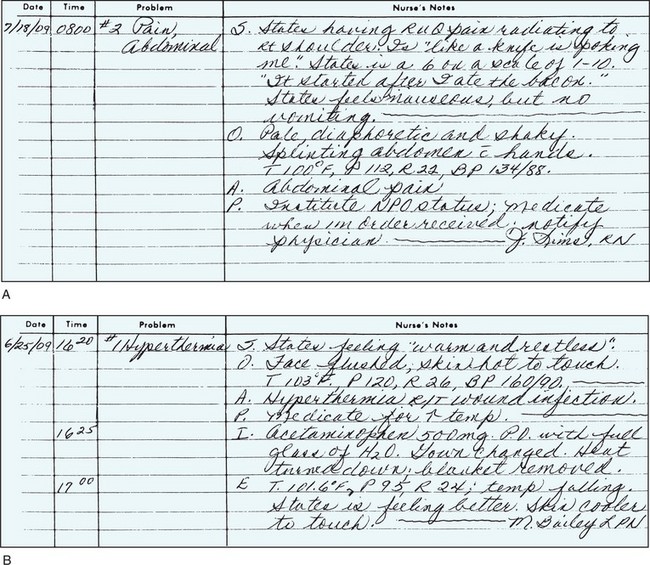 Date Time Problem Nurse's Notes
7/18/09 0800 #2 Pain, S. States having RUQ pain radiating to
Abdominal rt shoulder. Is "like a knife is poking
me." States is a 6 on a scale of 1-10.
"It started after I ate the bacon."
States feels nauseous, but no
vomiting.
O. Pale, diaphoretic and shaky.
Splinting abdomen c̄ hands.
T 100°F, P 112, R 22, BP 134/88.
A. Abdominal pain
P. Institute NPO status; medicate
when IM order received; notify
physician J. Sims, RN
A
Date Time Problem Nurse's Notes
6/25/09 1620 #1 Hyperthermia S. States feeling "warm and restless".
O. Face flushed, skin hot to touch.
T 103°F, P 120, R 26, BP 160/90.
A. Hyperthermia R/T wound infection.
P. Medicate for ↑ temp.
1625 I. Acetaminophen 500 mg. P.O. with full
glass of H2O. Gown changed. Heat
turned down; blanket removed.
1700 E T. 101.6°F, P 95, R 24; temp falling.
States is feeling better. Skin cooler
to touch. M. Bailey LPN
B